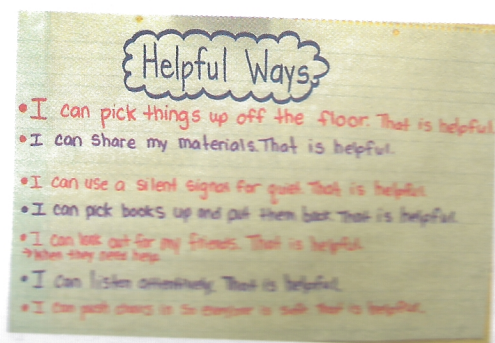 Helpful Ways
• I can pick things up off the floor. That is helpful
• I can share my materials. That is helpful.
• I can use a silent signal for quiet. That is helpful.
• I can pick books up and put them back. That is helpful.
• I can look out for my friends. That is helpful.
→ When they need help
• I can listen attentively. That is helpful.
• I can push chairs in so everyone is safe. That is helpful.